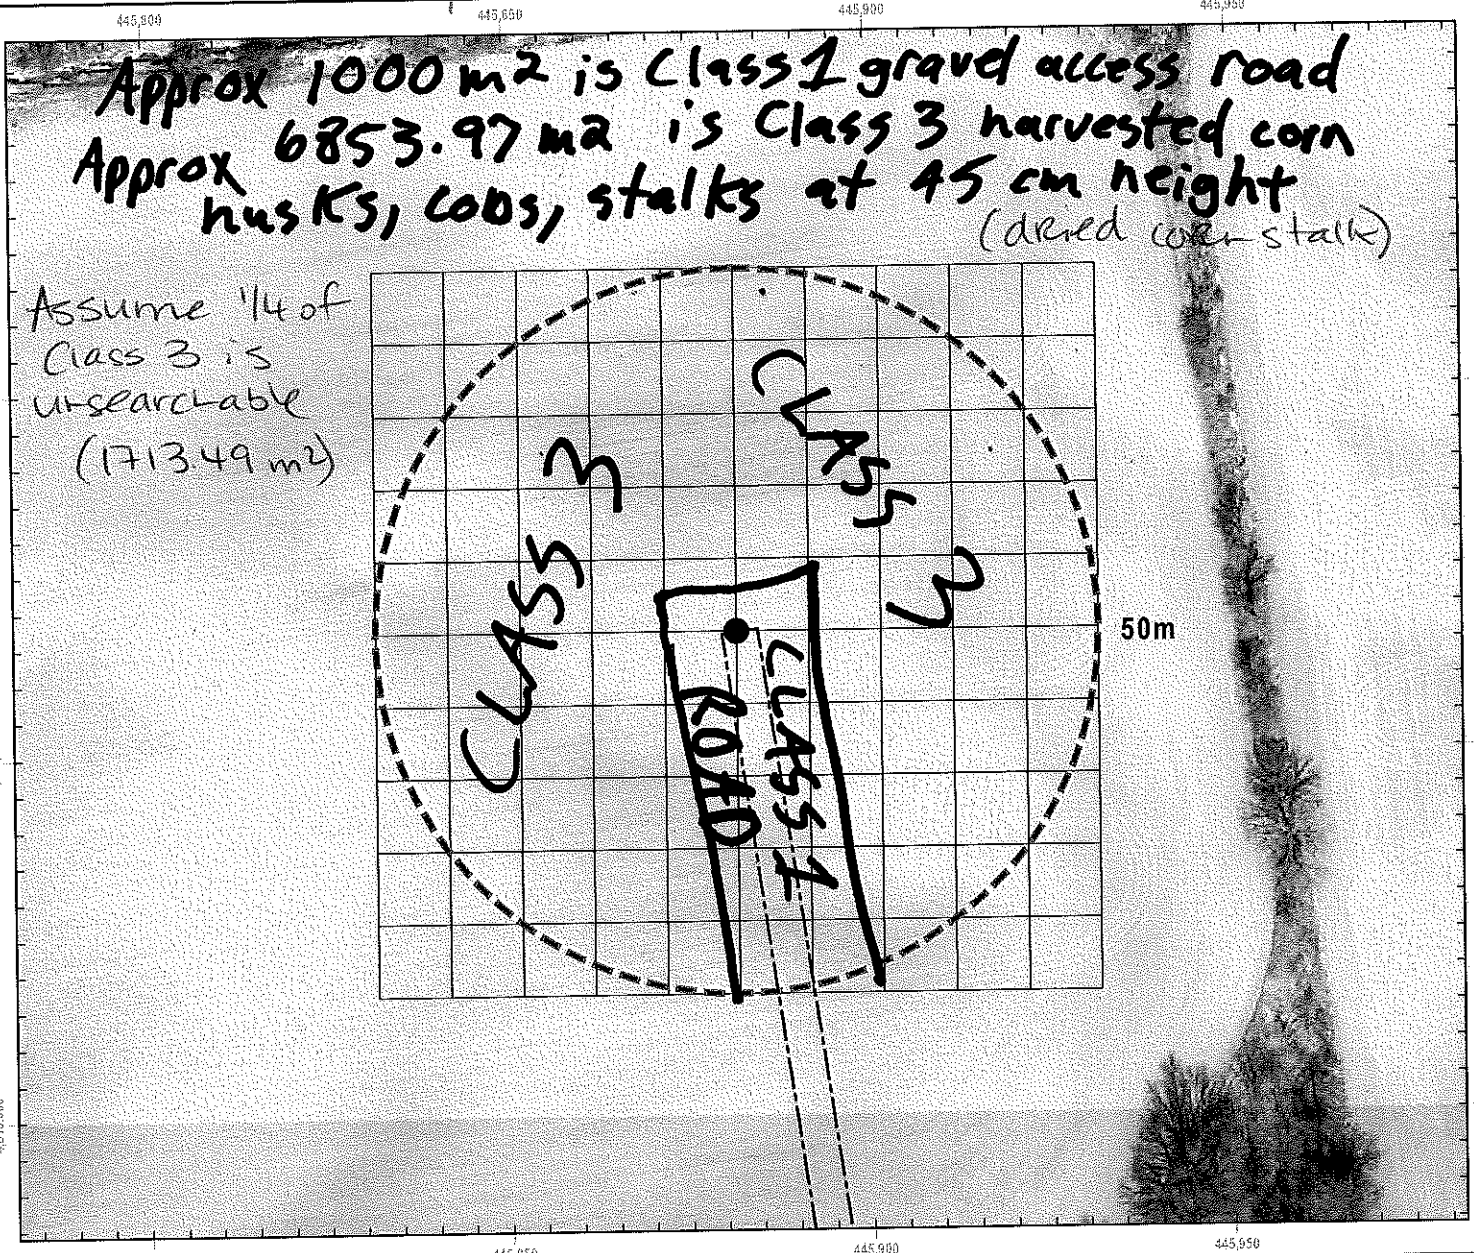 445,900
445,950
Approx 1000 m2 is Class 1 gravel access road
Approx 6853.97 m2 is Class 3 harvested corn
husks, cobs, stalks at 45 cm height
(dried corn stalk)
Assume 1/4 of
Class 3 is
unsearchable
(1713.49 m2)
CLASS 3
CLASS 3
50m
CLASS 1
ROAD
445,900
445,950